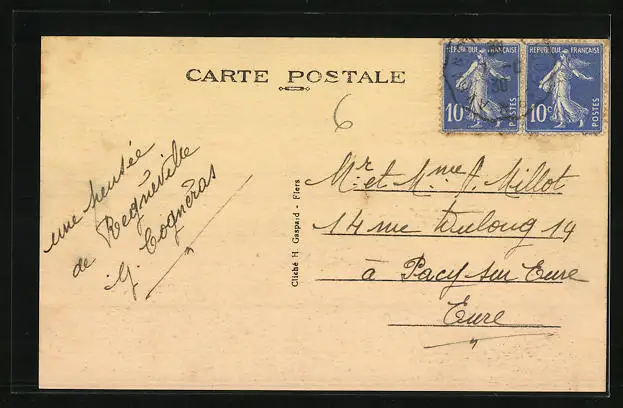 CARTE POSTALE
REPUBLIQUE FRANÇAISE
10c POSTES
REPUBLIQUE FRANÇAISE
10c POSTES
6
une pensée
de Regnéville
Cognéras
Cliché H. Gaspard - Flers
Mr et Mme J. Millot
14 rue Dulong 14
à Pacy sur Eure
Eure